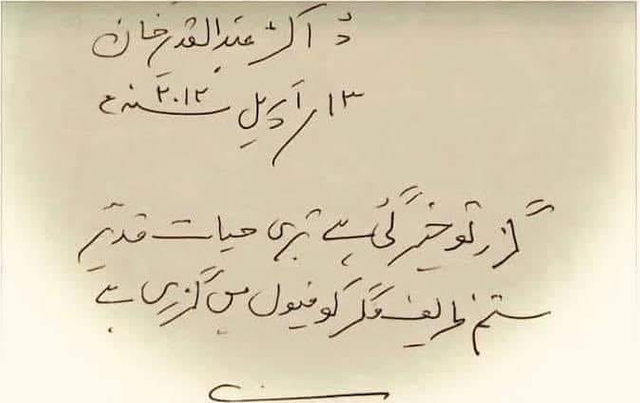 ڈاکٹر عبدالقدیر خان
۱۳/ اپریل ۲۰۱۲ سنہ ء
گزر تو خیر گئی ہے تیری حیات قدیر
ستم ظریف مگر کوفیوں میں گزری ہے